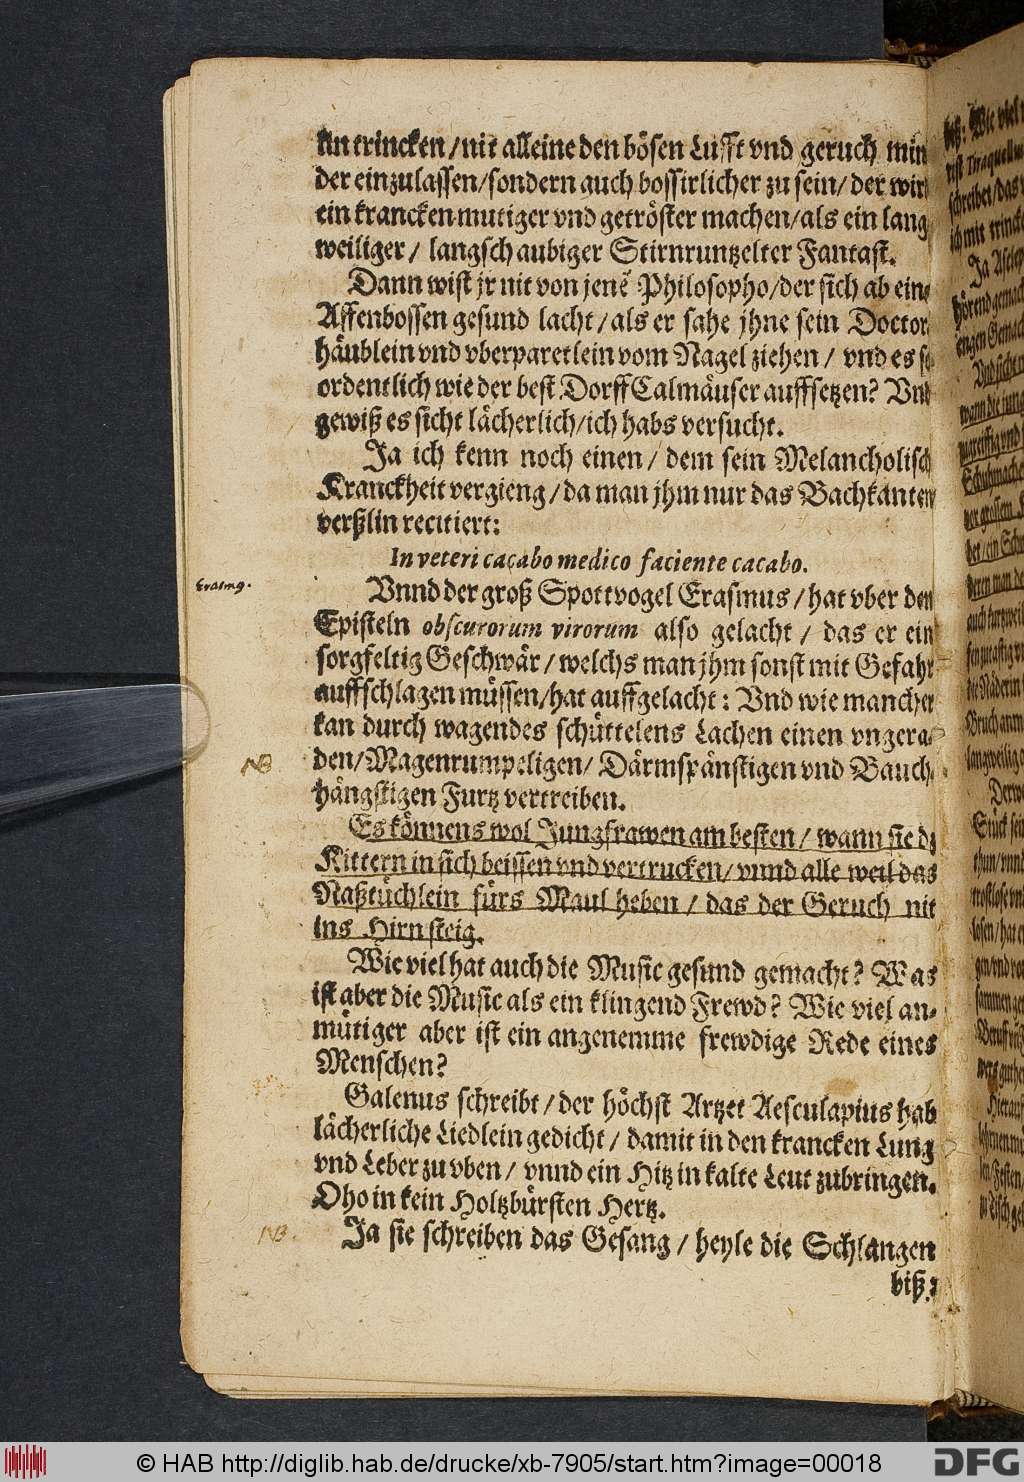 kan trincken/nit alleine den bösen Lufft vnd geruch min
der einzulassen/sondern auch bossirlicher zu sein/ der wir
ein krancken mutiger vnd getröster machen/als ein lang
weiliger/ langschaubiger Stirnruntzelter Fantast.
Dann wist jr nit von jenẽ Philosopho/der sich ab ein⸗
Affenbossen gesund lacht/als er sahe jhne sein Doctor
häublein vnd vberparetlein vom Nagel ziehen/ vnd es so
ordentlich wie der best DorffCalmäuser auffsetzen? Vnd
gewiß es sicht lächerlich/ich habs versucht.
Ja ich kenn noch einen/ dem sein Melancholisch
Kranckheit vergieng/da man jhm nur das Bachkanten
verßlin recitiert:
In veteri cacabo medico faciente cacabo.
Erasmꝰ.
Vnnd der groß Spottvogel Erasmus/hat vber den
Episteln obscurorum virorum also gelacht/ das er ein
sorgfeltig Geschwär/welchs man jhm sonst mit Gefahr
auffschlagen müssen/hat auffgelacht: Vnd wie mancher
kan durch wagendes schüttelens Lachen einen vngera⸗
NB
den/Magenrumpeligen/ Därmspänstigen vnd Bauch⸗
hängstigen Furtz vertreiben.
Es könnens wol Jungfrawen am besten/ wann sie dz
Kittern in sich beissen vnd vertrucken/ vnnd alle weil das
Naßtüchlein fürs Maul heben/ das der Geruch nit
ins Hirn steig.
Wie viel hat auch die Music gesund gemacht? Was
ist aber die Music als ein klingend Frewd? Wie viel an⸗
mütiger aber ist ein angenemme frewdige Rede eines
Menschen?
Galenus schreibt/der höchst Artzet Aesculapius hab
lächerliche Liedlein gedicht/ damit in den krancken Lung
vnd Leber zu vben/ vnnd ein Hitz in kalte Leut zubringen.
Oho in kein Holtzbürsten Hertz.
NB.
Ja sie schreiben das Gesang/ heyle die Schlangen
biß:
© HAB http://diglib.hab.de/drucke/xb-7905/start.htm?image=00018
DFG